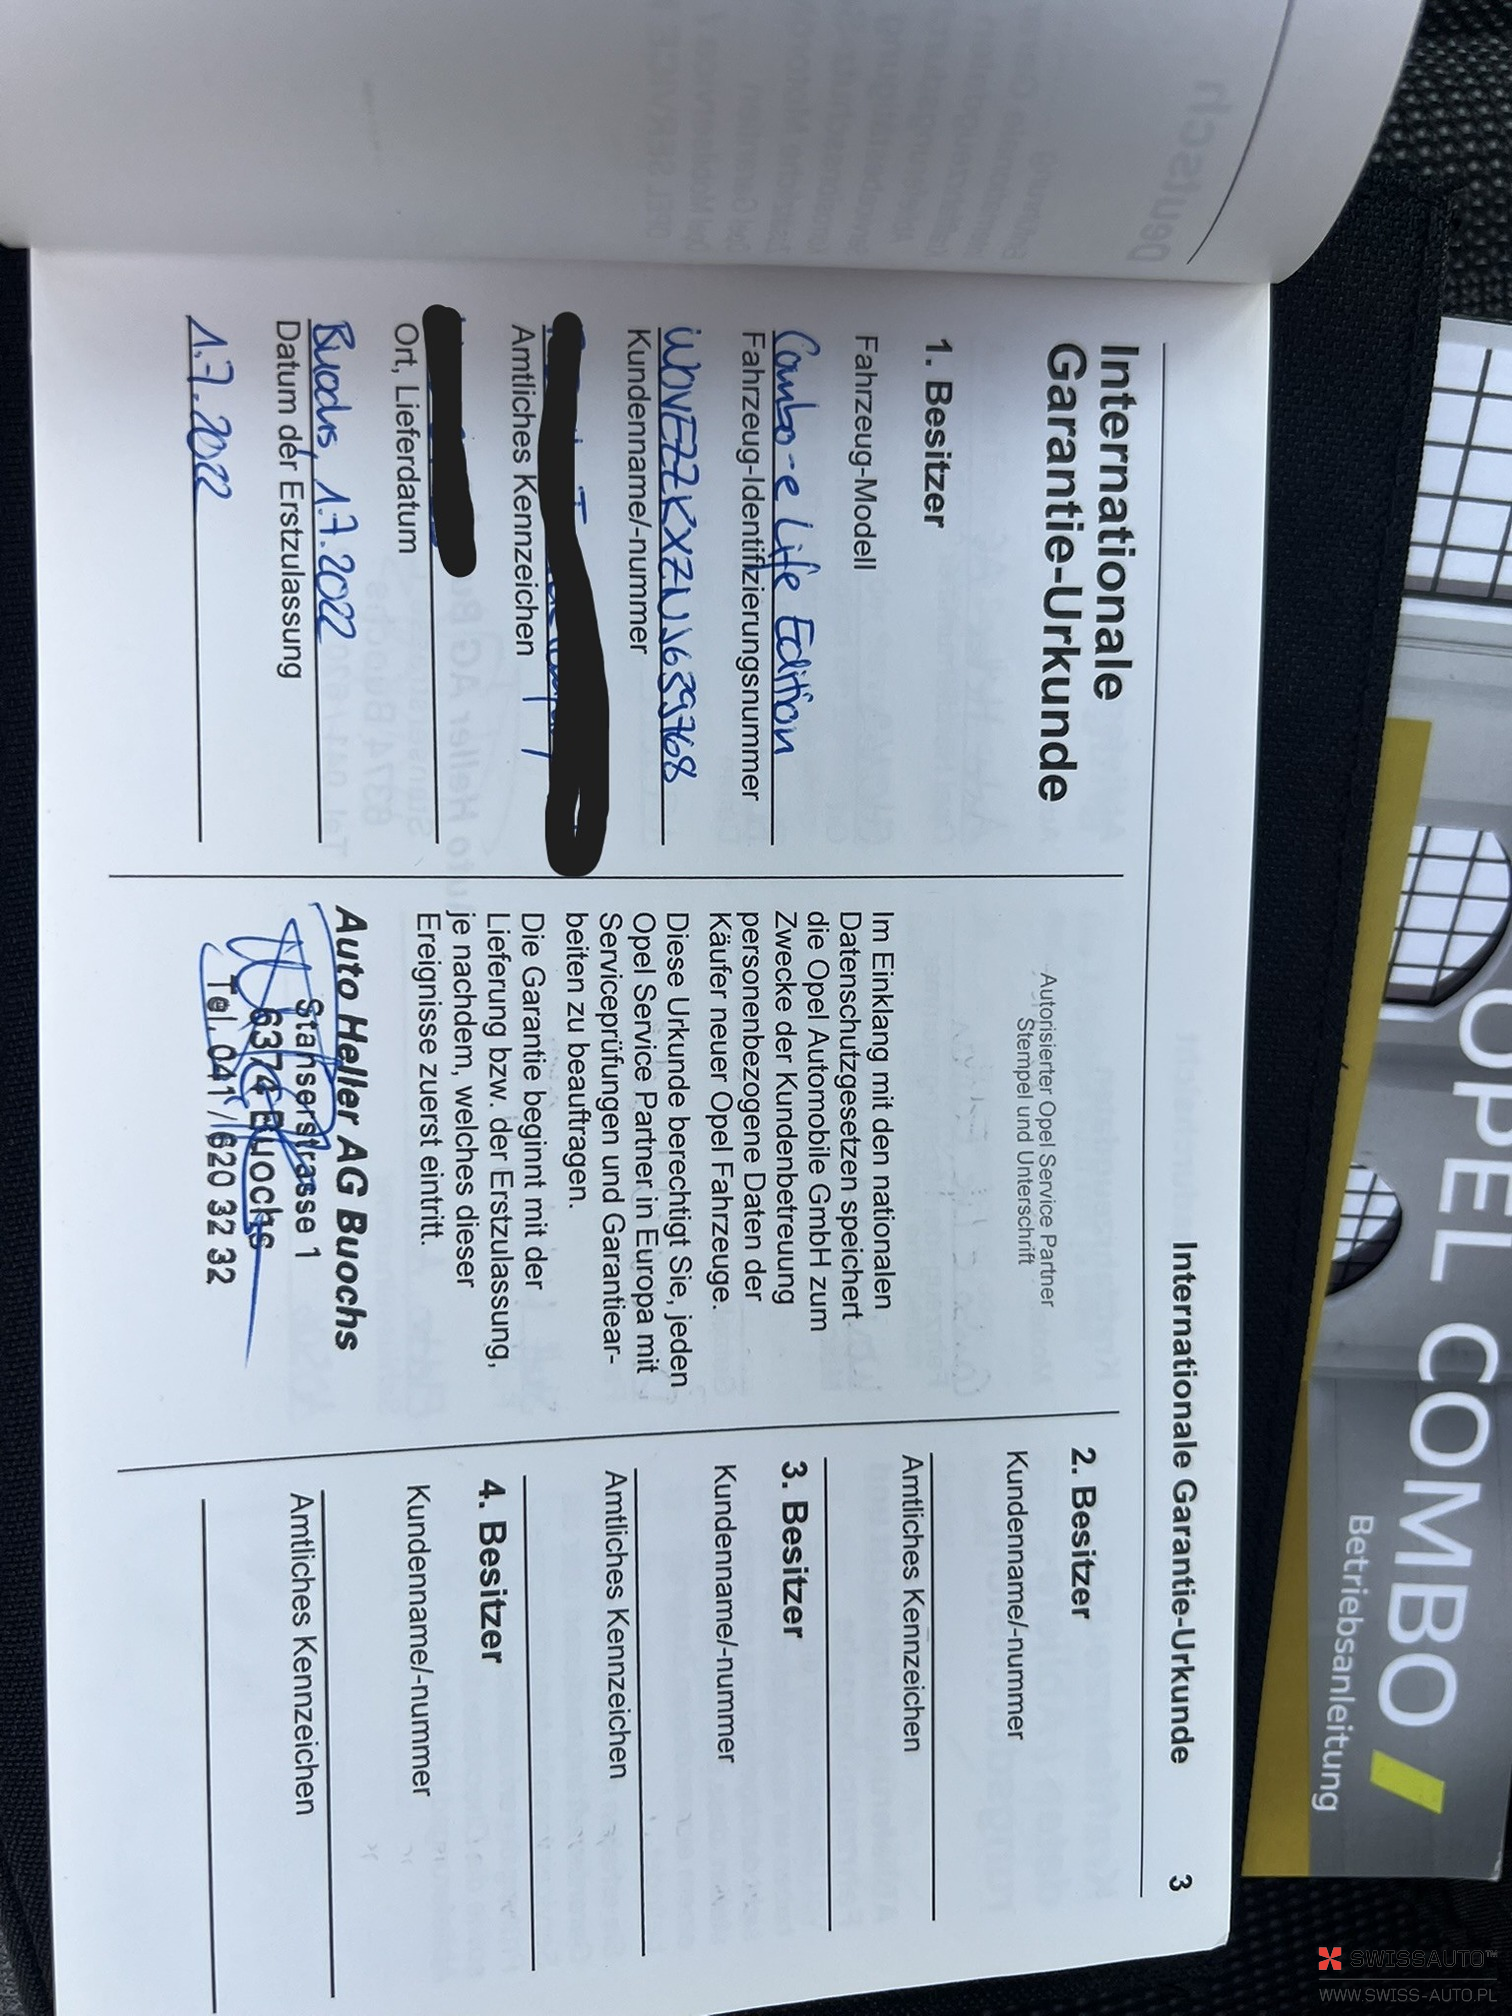 Internationale Garantie-Urkunde 3
Internationale
Garantie-Urkunde
1. Besitzer
Fahrzeug-Modell
Combo-e Life Edition
Fahrzeug-Identifizierungsnummer
Kundenname/-nummer
Amtliches Kennzeichen
Ort, Lieferdatum
Buochs, 1.7.2022
Datum der Erstzulassung
1.7.2022
Autorisierter Opel Service Partner
Stempel und Unterschrift
Im Einklang mit den nationalen
Datenschutzgesetzen speichert
die Opel Automobile GmbH zum
Zwecke der Kundenbetreuung
personenbezogene Daten der
Käufer neuer Opel Fahrzeuge.
Diese Urkunde berechtigt Sie, jeden
Opel Service Partner in Europa mit
Serviceprüfungen und Garantiear-
beiten zu beauftragen.
Die Garantie beginnt mit der
Lieferung bzw. der Erstzulassung,
je nachdem, welches dieser
Ereignisse zuerst eintritt.
Auto Heller AG Buochs
Stanserstrasse 1
6374 Buochs
Tel. 041 / 620 32 32
2. Besitzer
Kundenname/-nummer
Amtliches Kennzeichen
3. Besitzer
Kundenname/-nummer
Amtliches Kennzeichen
4. Besitzer
Kundenname/-nummer
Amtliches Kennzeichen
OPEL COMBO
Betriebsanleitung
SWISSAUTO™
WWW.SWISS-AUTO.PL